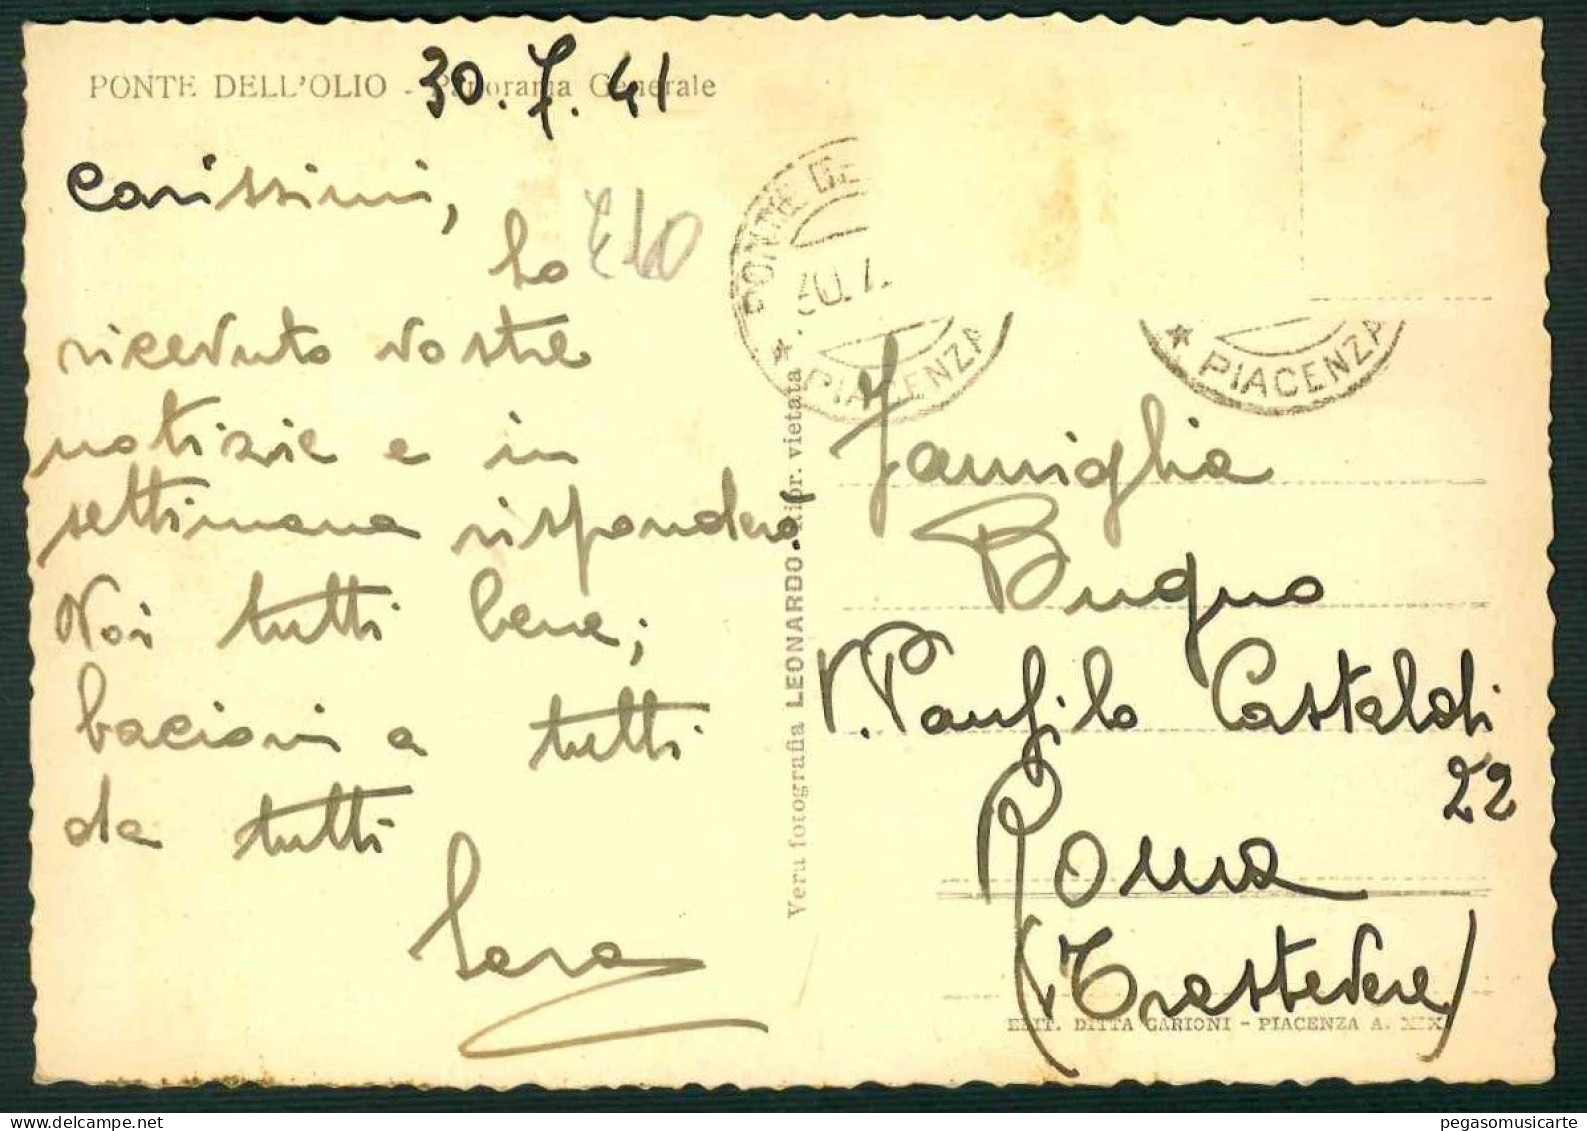 PONTE DELL'OLIO - Panorama Generale
30.7.41
Carissimi,
ho
ricevuto vostre
notizie e in
settimana risponderò
Noi tutti bene;
bacioni a tutti
da tutti
Sara
Vera fotografia LEONARDO - Ripr. vietata
PONTE DE
30.7.
* PIACENZA
* PIACENZA
Famiglia
Bugno
V. Panfilo Castaldi
22
Roma
(Trastevere)
EDIT. DITTA CARIONI - PIACENZA A. XIX
pegasomusicarte